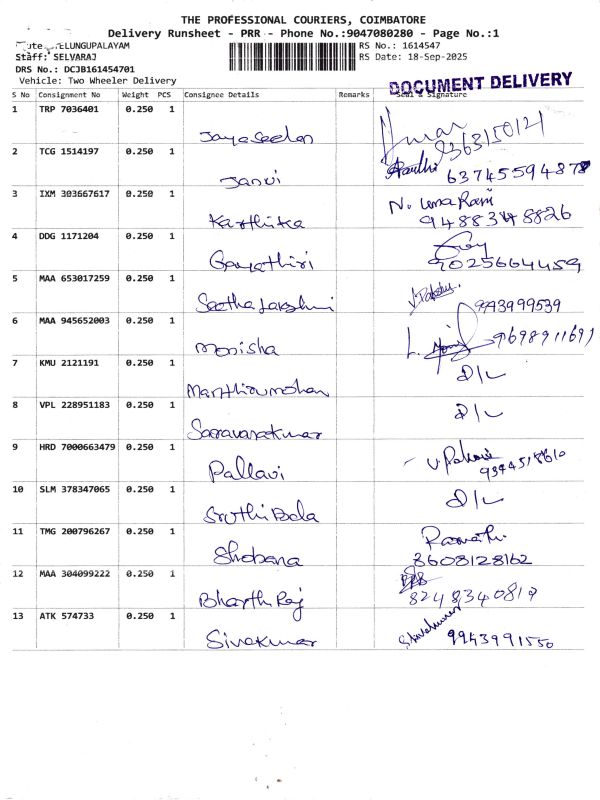 THE PROFESSIONAL COURIERS, COIMBATORE
Delivery Runsheet - PRR - Phone No.:9047080280 - Page No.:1
TELUNGUPALAYAM
RS No.: 1614547
Staff: SELVARAJ
RS Date: 18-Sep-2025
DRS No.: DCJB161454701
Vehicle: Two Wheeler Delivery
DOCUMENT DELIVERY
S No Consignment No Weight PCS Consignee Details Remarks Seal & Signature
1 TRP 7036401 0.250 1
Jayaseelan
2 TCG 1514197 0.250 1
Janvi 6374559487
3 IXM 303667617 0.250 1 N. Uma Rani
Karthika
4 DDG 1171204 0.250 1
Gayathiri 9025664459
5 MAA 653017259 0.250 1
Seetha Lakshmi 9943999539
6 MAA 945652003 0.250 1
Monisha
7 KMU 2121191 0.250 1 D/L
8 VPL 228951183 0.250 1 D/L
Saravanakumar
9 HRD 7000663479 0.250 1
Pallavi
10 SLM 378347065 0.250 1 D/L
Sruthi Bala
11 TMG 200796267 0.250 1
Shobana 8608128162
12 MAA 304099222 0.250 1
Bharth Raj
13 ATK 574733 0.250 1
Sivakumar 9943991550